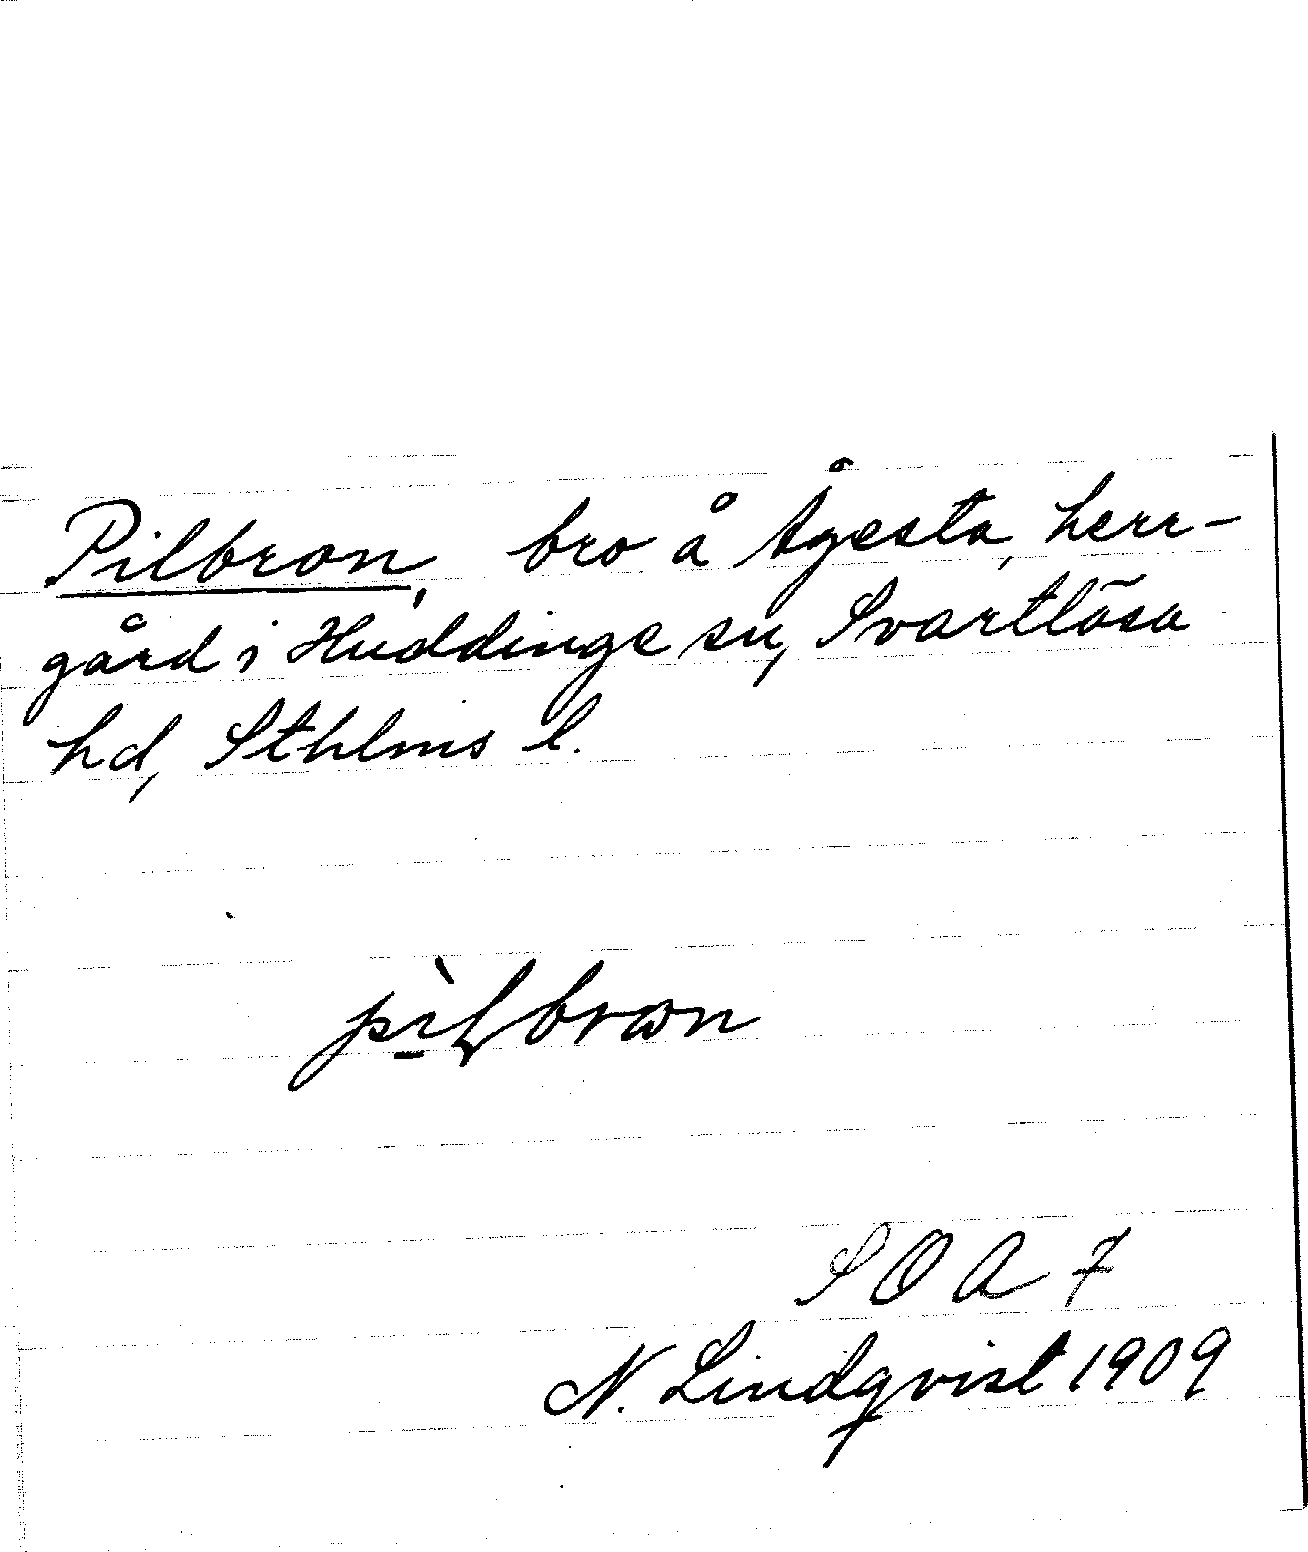 Pilbron, bro å Ågesta, herr-
gård i Huddinge sn, Svartlösa
hd, Sthlms l.
SOA 7
N. Lindqvist 1909